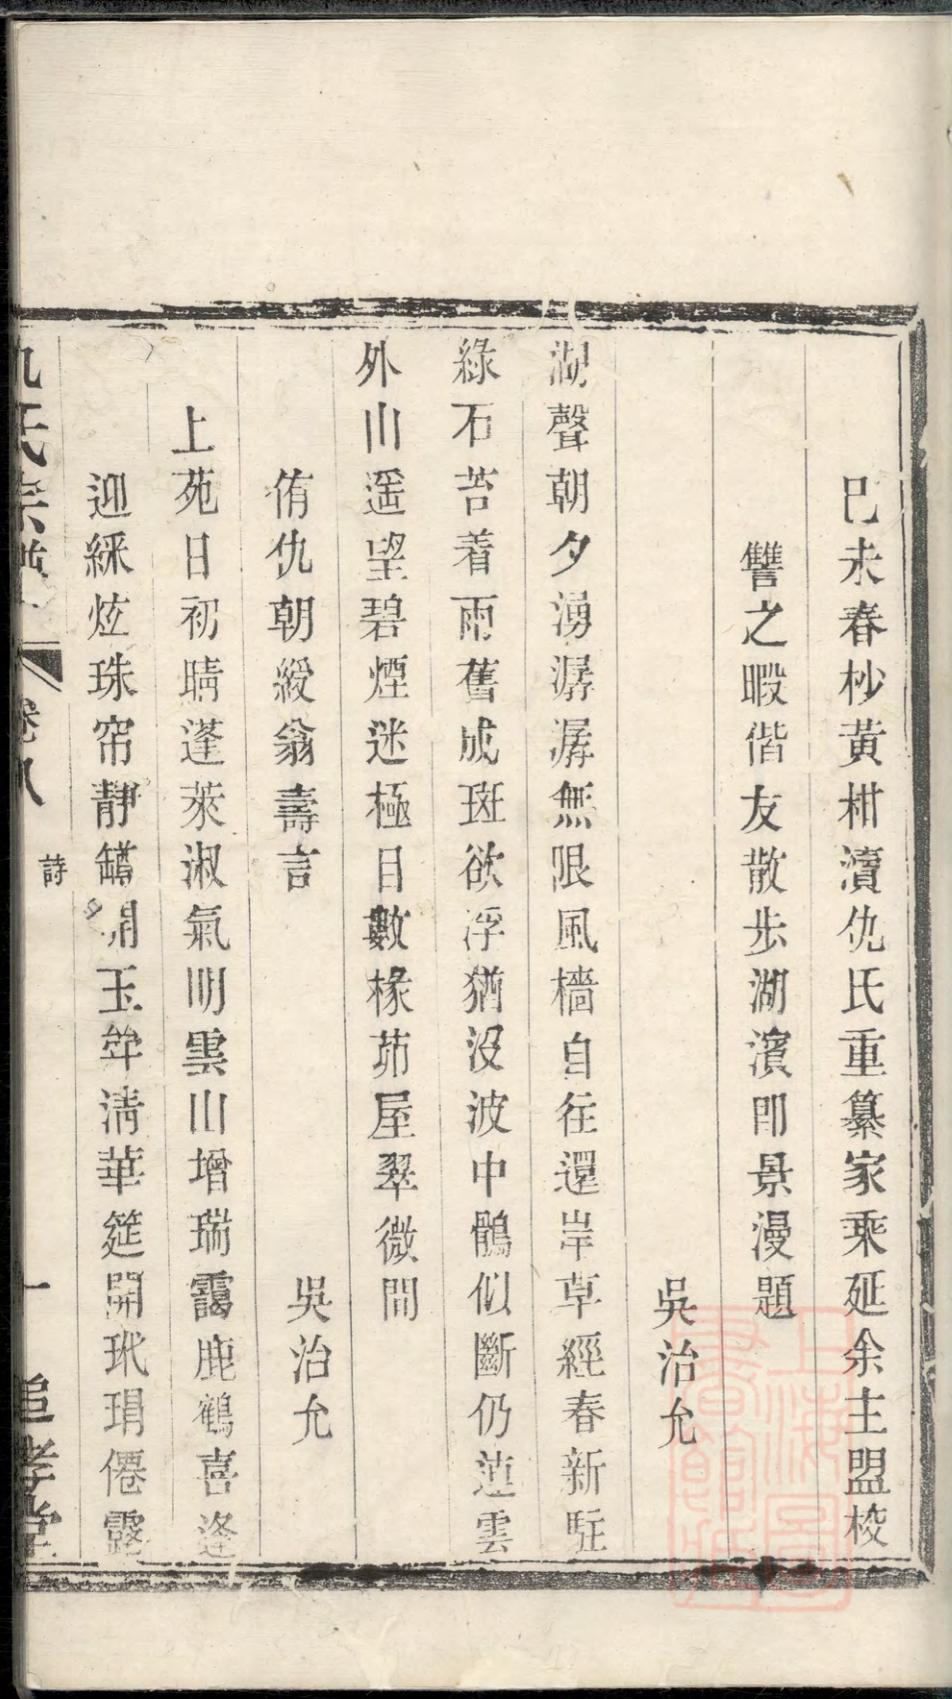 巳未春杪黃柑瀆仇氏重纂家乘延余主盟校
讐之暇偕友散步湖濱即景漫題
吳治允
湖聲朝夕湧潺潺無限風檣自往還岸草經春新駐
綠石苔着雨舊成斑欲浮猶沒波中鶻似斷仍連雲
外山遥望碧煙迷極目數椽茆屋翠微間
侑仇朝綬翁壽言
吳治允
上苑日初晴蓬萊淑氣明雲山增瑞靄鹿鶴喜逢
迎綵炫珠帘靜罇開玉斝淸華筵開玳瑁僊露
仇氏宗譜
卷八
詩
一
追孝堂
上海圖書館藏